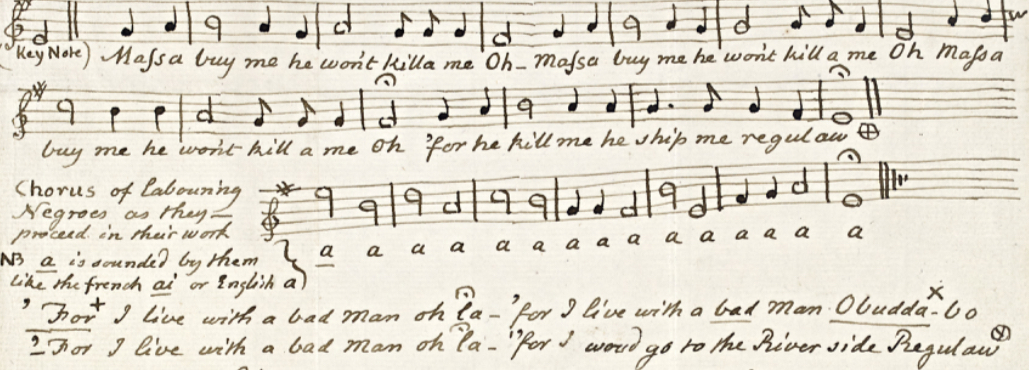 Key Note) Maſsa buy me he won't killa me Oh- Maſsa buy me he won't kill a me Oh Maſsa
buy me he won't kill a me oh 'for he kill me he ship me regulaw ⊕
Chorus of Labouring
Negroes as they—
proceed in their work
a a a a a a a a a a a a a a a
NB a is sounded by them
like the french ai or English a)
' For + I live with a bad man oh la - 'for I live with a bad man Obudda-bo x
2 For I live with a bad man oh la - "for I woud go to the River side Regulaw